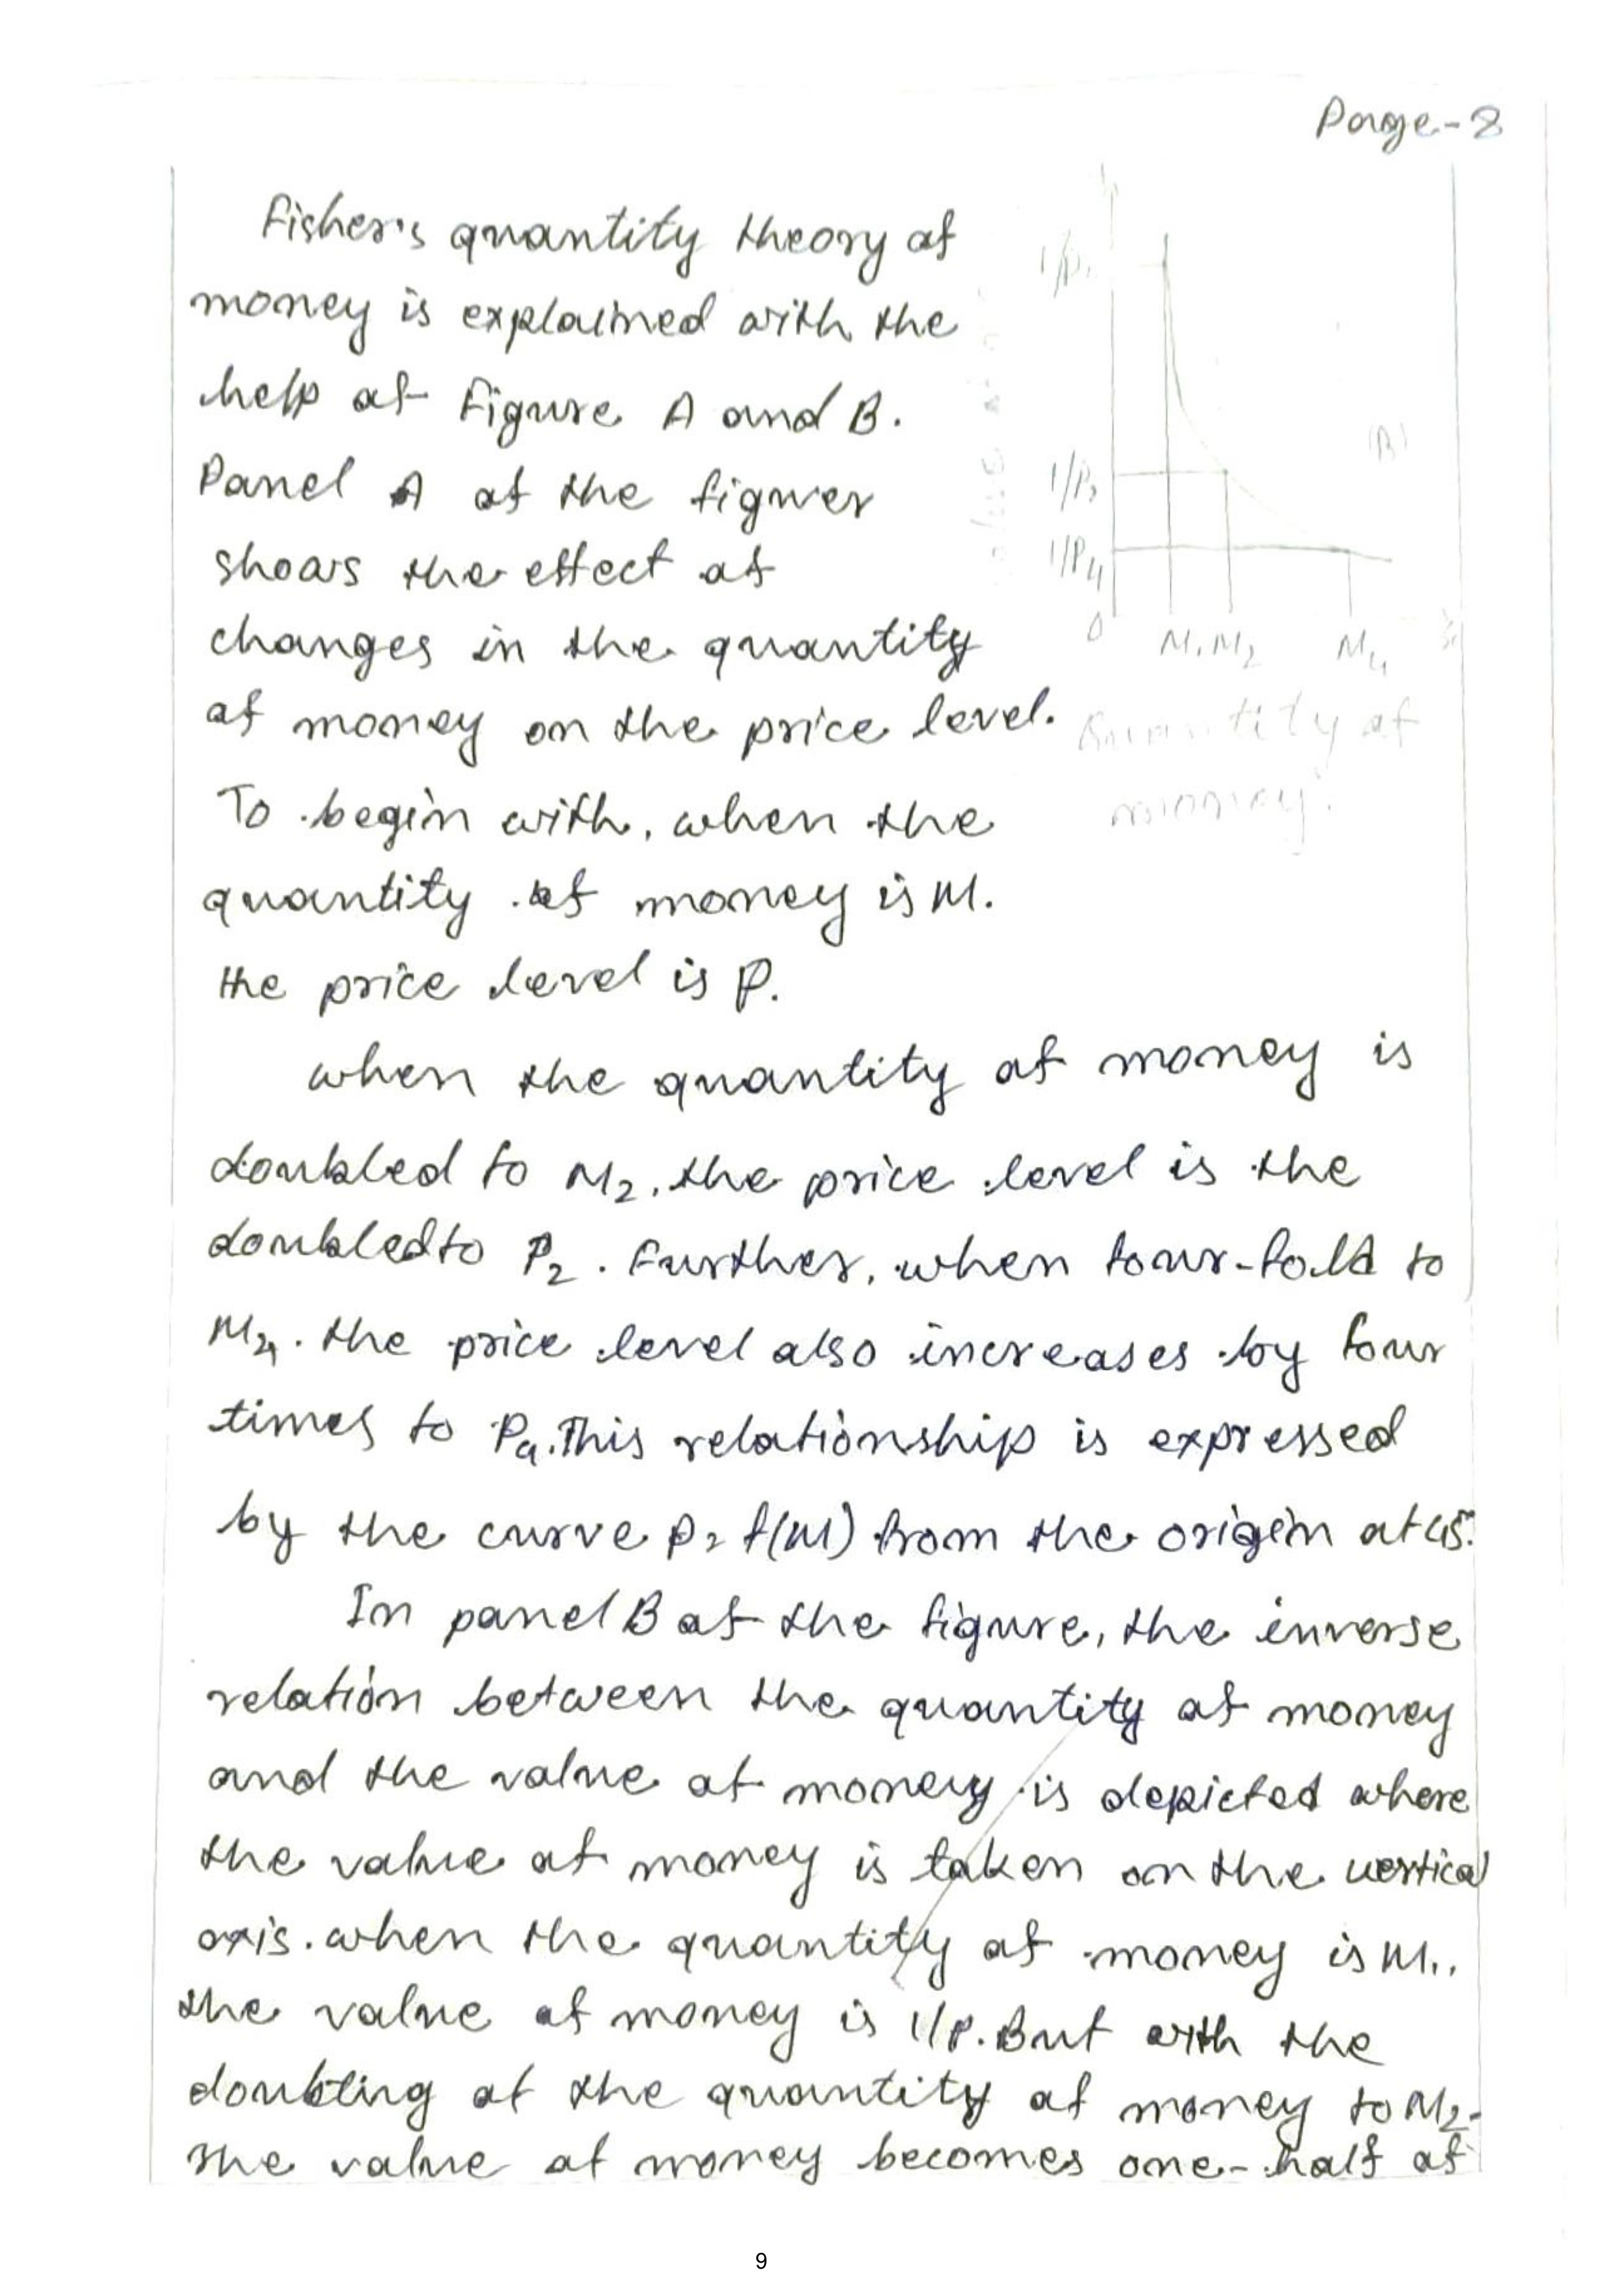 Page-8
Fisher's quantity theory of
money is explained with the
help of Figure A and B.
Panel A of the figurer
shows the effect of
changes in the quantity
of money on the price level.
To begin with, when the
quantity of money is M.
the price level is P.
when the quantity of money is
doubled to M2, the price level is the
doubled to P2. Further, when four-fold to
M4. the price level also increases by four
times to P4. This relationship is expressed
by the curve P = f(M) from the origin at 45°.
In panel B of the figure, the inverse
relation between the quantity of money
and the value of money is depicted where
the value of money is taken on the vertical
axis. when the quantity of money is M1,
the value of money is 1/P. But with the
doubling of the quantity of money to M2.
the value of money becomes one-half of
1/P
(B)
1/P2
1/P4
0
M1 M2 M4
Quantity of
money
9